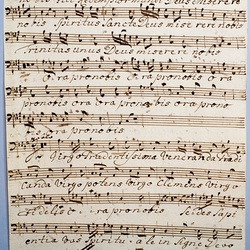 Deus miserere
nobis Spiritus Sancte Deus miserere nobis
Trinitas unus Deus miserere nobis
Ora pro nobis Ora pro nobis
pro nobis ora ora pro nobis ora pro no
bis ora pro nobis
Virgo prudentissima Veneranda
Virgo potens Virgo Clemens Virgo
fidelis ora pro nobis Sedes sapi
entia vas Spiritu ale in signe Devo